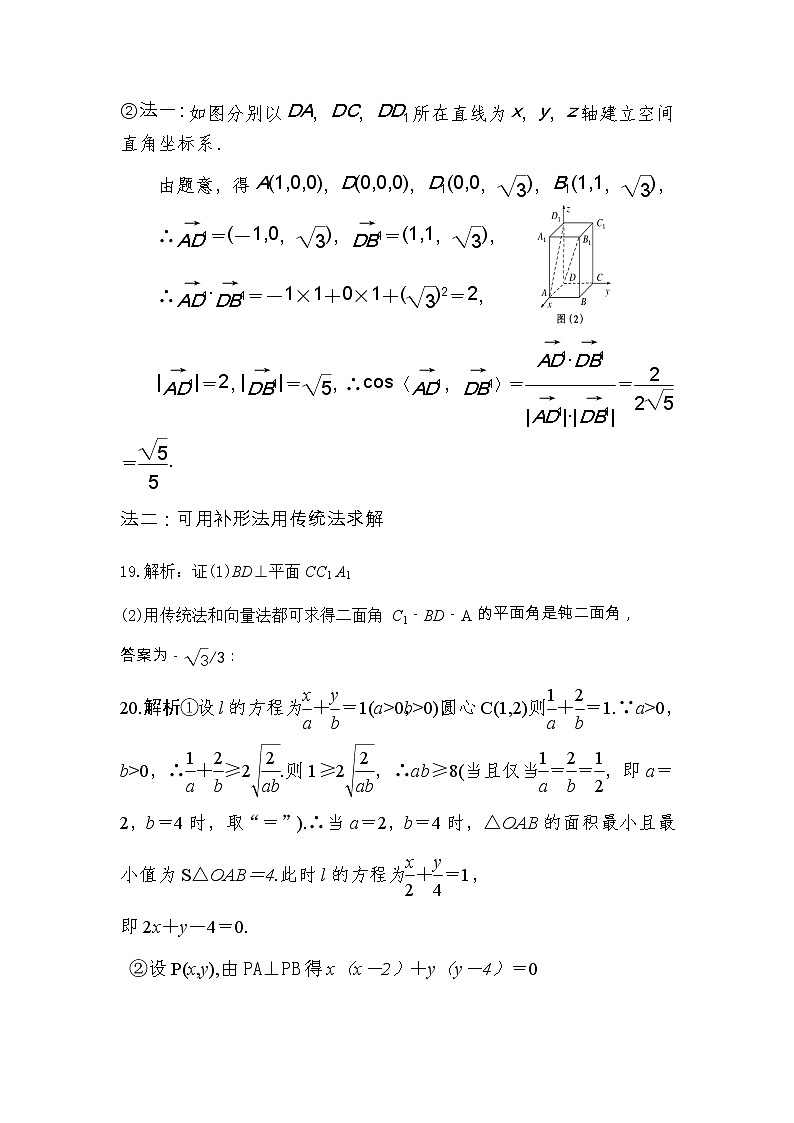 ②法一：如图分别以DA，DC，DD₁所在直线为x，y，z轴建立空间
直角坐标系．
由题意，得A(1,0,0)，D(0,0,0)，D₁(0,0，√3)，B₁(1,1，√3)，
∴AD₁＝(－1,0，√3)，DB₁＝(1,1，√3)，
∴AD₁·DB₁＝－1×1＋0×1＋(√3)²＝2，
z
D₁
C₁
A₁
B₁
D
C
A
B
x
y
图(2)
|AD₁|＝2，|DB₁|＝√5，∴cos〈AD₁，DB₁〉＝AD₁·DB₁/|AD₁|·|DB₁|＝2/2√5
＝√5/5.
法二：可用补形法用传统法求解
19.解析：证(1)BD⊥平面CC₁A₁
(2)用传统法和向量法都可求得二面角 C₁﹣BD﹣A的平面角是钝二面角，
答案为﹣√3/3；
20.解析①设l的方程为x/a＋y/b＝1(a>0,b>0)圆心C(1,2)则1/a＋2/b＝1.∵a>0，
b>0，∴1/a＋2/b≥2√(2/ab).则1≥2√(2/ab)，∴ab≥8(当且仅当1/a＝2/b＝1/2，即a＝
2，b＝4时，取“＝”).∴当a＝2，b＝4时，△OAB的面积最小且最
小值为S△OAB＝4.此时l的方程为x/2＋y/4＝1，
即2x＋y－4＝0.
②设P(x,y),由PA⊥PB得x（x－2）＋y（y－4）＝0